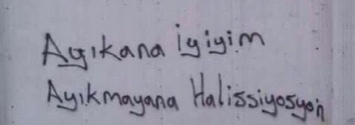 Ayıkana iyiyim
Ayıkmayana Halissiyosyon